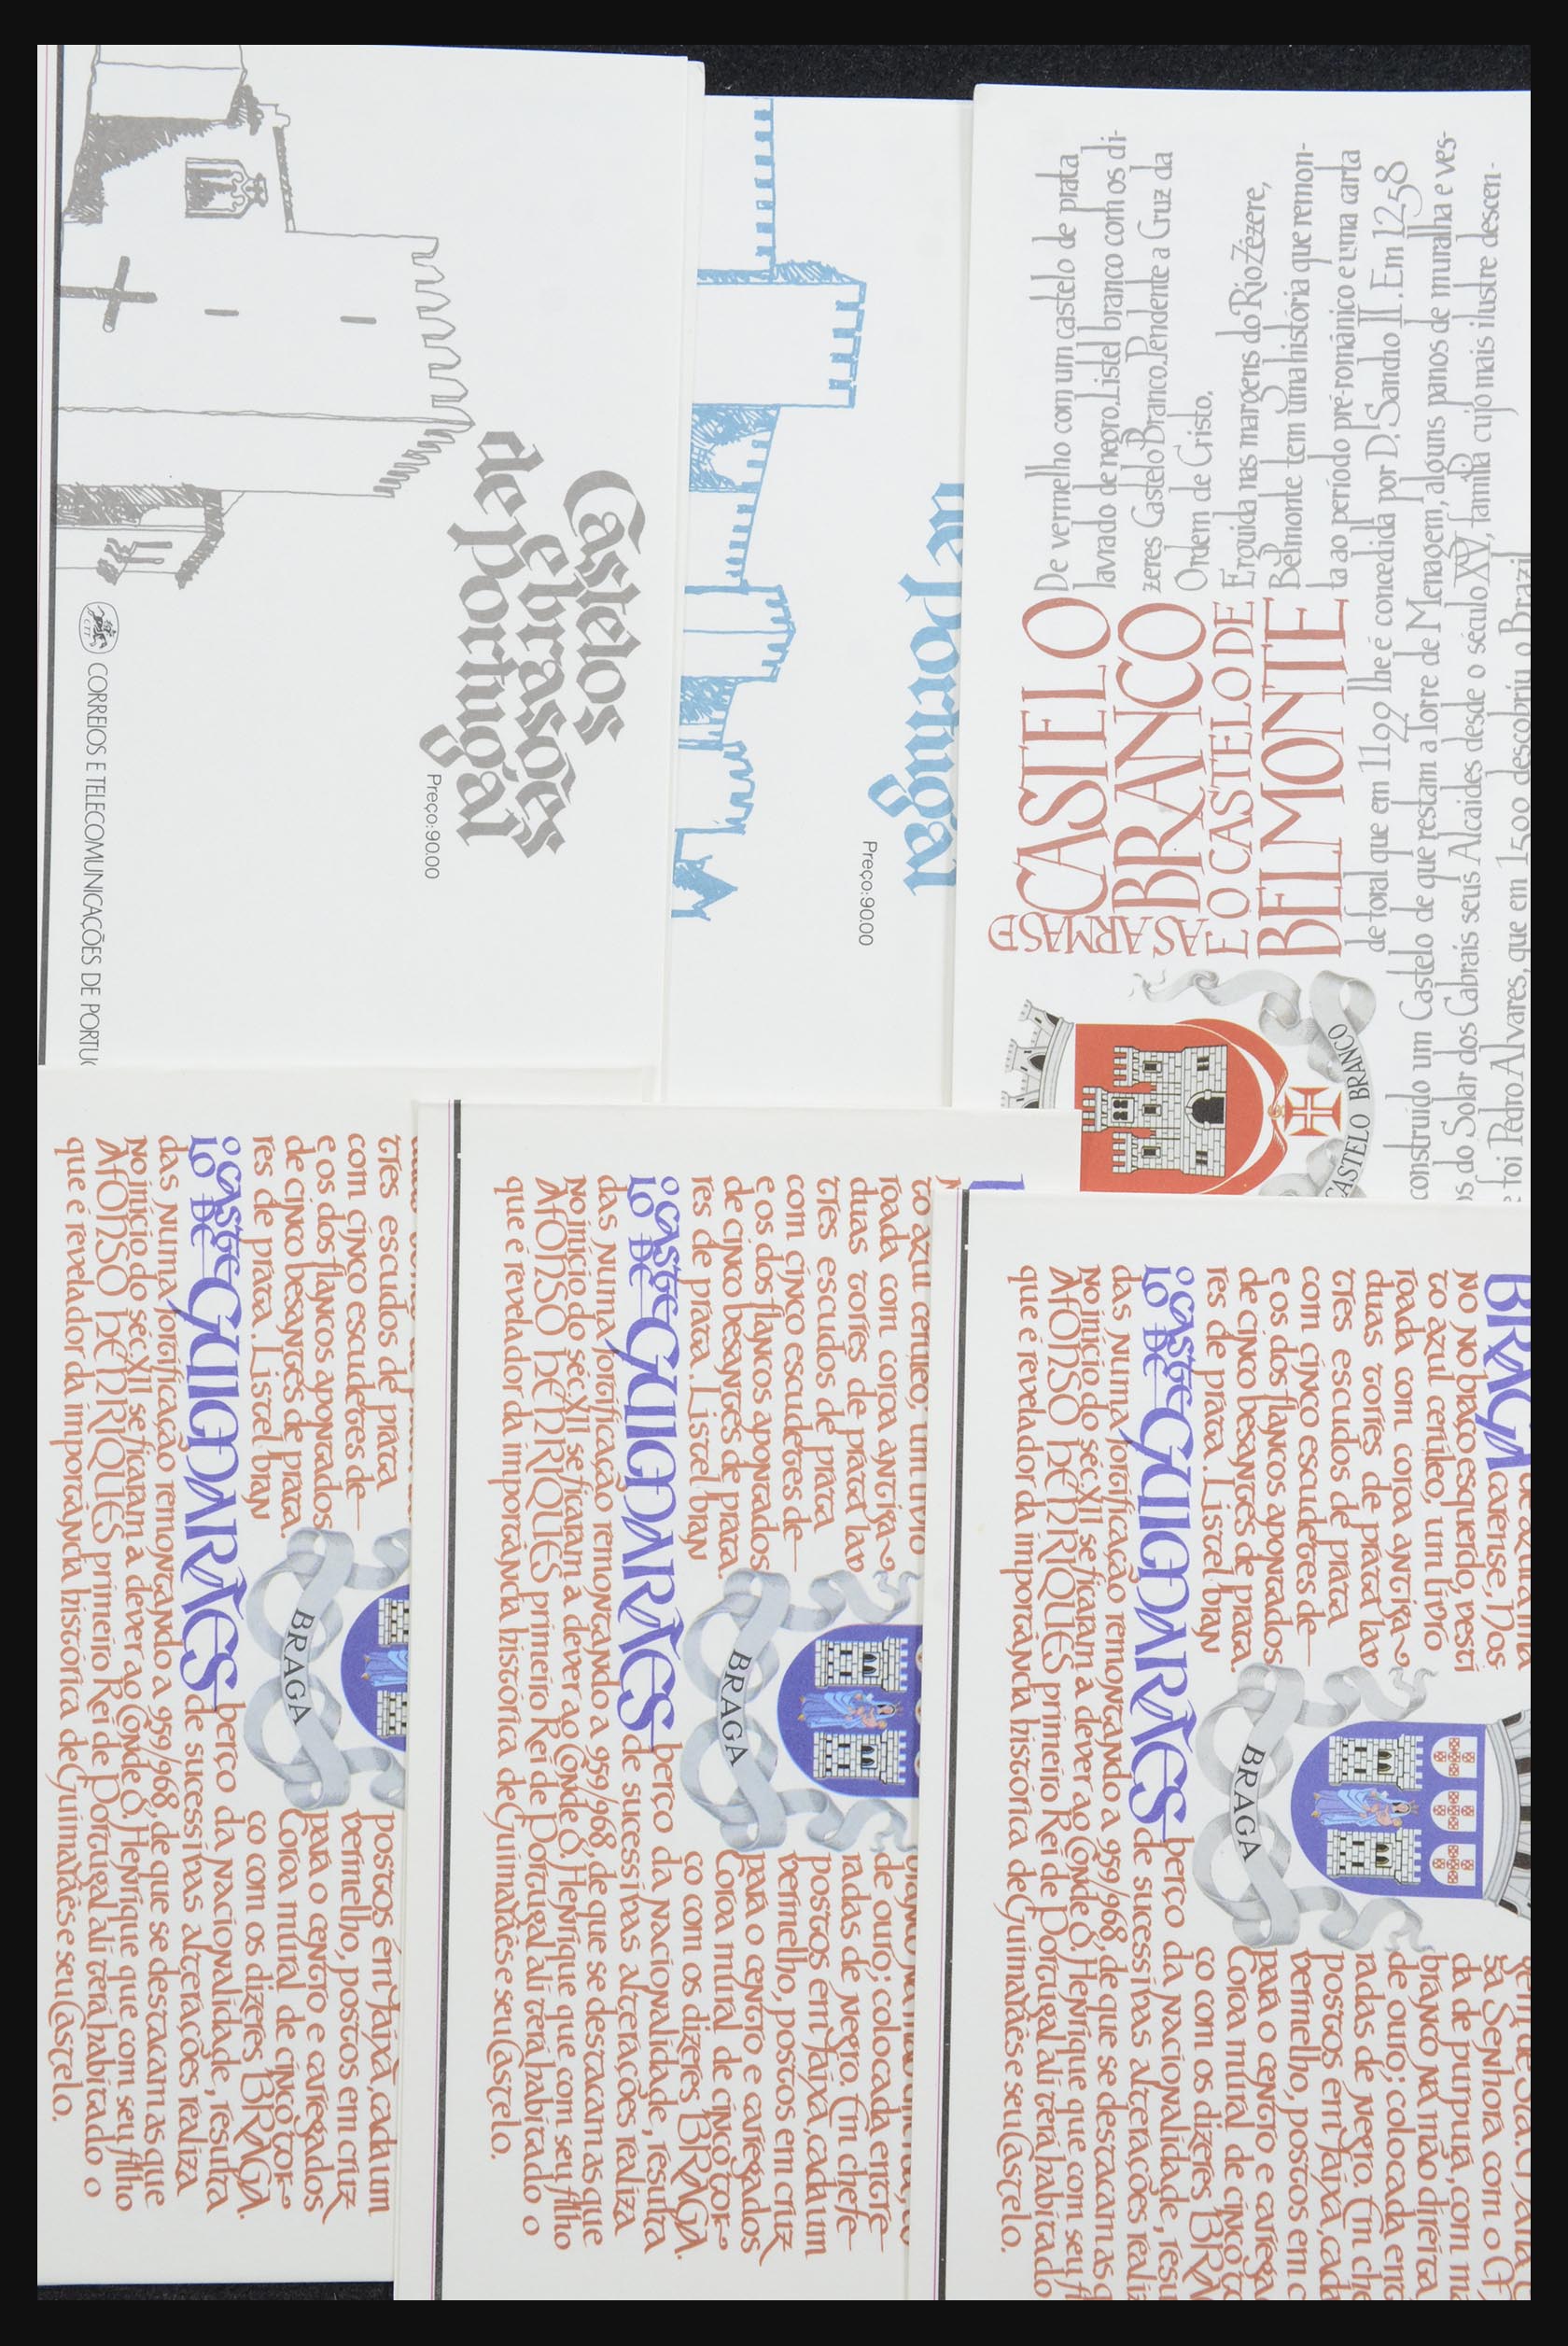 Castelos
e brasões
de portugal
Preço:90.00
CTT
CORREIOS E TELECOMUNICAÇÕES DE PORTUG
de portugal
Preço:90.00
AS ARMAS DE
CASTELO
BRANCO
E O CASTELO DE
BELMONTE
De vermelho com um castelo de prata
lavrado de negro. Listel branco com os di-
zeres Castelo Branco. Pendente a Cruz da
Ordem de Cristo.
Erguida nas margens do Rio Zêzere,
Belmonte tem uma história que remon-
ta ao período pré-românico e uma carta
de foral que em 1199 lhe é concedida por D. Sancho II. Em 1258
construído um Castelo de que restam a Torre de Menagem, alguns panos de muralha e ves-
s do Solar dos Cabrais seus Alcaides desde o século XV, família cujo mais ilustre descen-
foi Pedro Alvares, que em 1500 descobriu o Brazil
CASTELO BRANCO
tres escudos de prata
com cinco escudetes de
e os dos flancos apontados
de cinco besantes de prata.
res de prata. Listel bran
postos em faixa, cada um
vermelho, postos em cruz
para o centro e carregados
Coroa mural de cinco tor
co com os dizeres BRAGA.
BRAGA
o CASTE
LO DE GUIMARÃES berço da nacionalidade, resulta
de sucessivas alterações realiza
das numa fortificação remontando a 959/968, de que se destacam as que
no início do séc. XII se ficaram a dever ao Conde D. Henrique que com seu filho
AFONSO HENRIQUES primeiro Rei de Portugal ali terá habitado o
que é revelador da importância histórica de Guimarães e seu Castelo.
to azul cerúleo, um livro
roada com coroa antiga
duas torres de prata lav
tres escudos de prata
com cinco escudetes de
e os dos flancos apontados
de cinco besantes de prata.
res de prata. Listel bran
de ouro; colocada entre
radas de negro. Em chefe
postos em faixa, cada um
vermelho, postos em cruz
para o centro e carregados
Coroa mural de cinco tor
co com os dizeres BRAGA.
BRAGA
o CASTE
LO DE GUIMARÃES berço da nacionalidade, resulta
de sucessivas alterações realiza
das numa fortificação remontando a 959/968, de que se destacam as que
no início do séc. XII se ficaram a dever ao Conde D. Henrique que com seu filho
AFONSO HENRIQUES primeiro Rei de Portugal ali terá habitado o
que é revelador da importância histórica de Guimarães e seu Castelo.
BRAGA
carense, Nos
no No braço esquerdo, vesti
to azul cerúleo, um livro
roada com coroa antiga
duas torres de prata lav
tres escudos de prata
com cinco escudetes de
e os dos flancos apontados
de cinco besantes de prata.
res de prata. Listel bran
sa Senhora com o
da de purpura, com ma
branco na mão direita
de ouro; colocada ent
radas de negro. Em che
postos em faixa, cada
vermelho, postos em c
para o centro e carrega
Coroa mural de cinco to
co com os dizeres BRA
BRAGA
o CASTE
LO DE GUIMARÃES berço da nacionalidade, resu
de sucessivas alterações reali
das numa fortificação remontando a 959/968, de que se destacam as q
no início do séc. XII se ficaram a dever ao Conde D. Henrique que com seu f
AFONSO HENRIQUES primeiro Rei de Portugal ali terá habitado
que é revelador da importância histórica de Guimarães e seu Castelo.